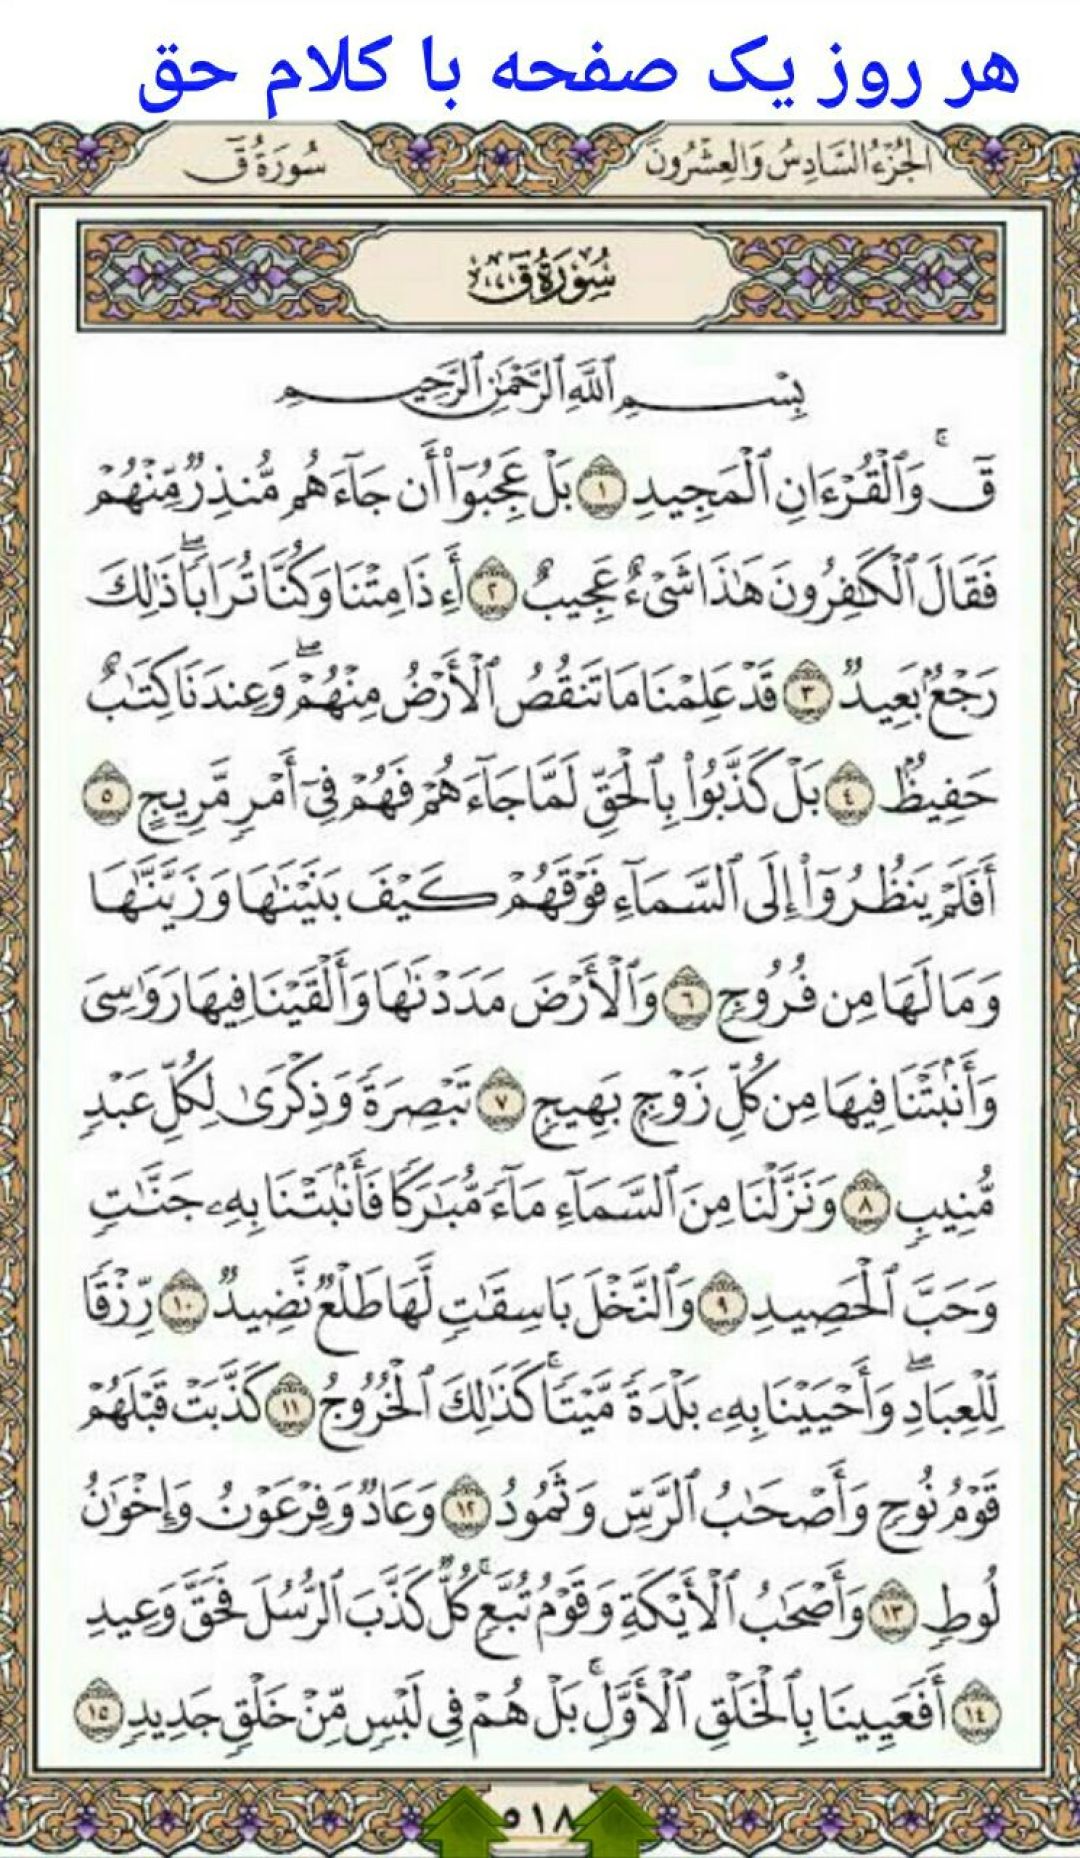 هر روز یک صفحه با کلام حق
الجُزْءُ السَّادِسُ وَالعِشْرُونَ
سُورَةُ قٓ
سُورَةُ قٓ
بِسْمِ ٱللَّهِ ٱلرَّحْمَٰنِ ٱلرَّحِيمِ
قٓۚ وَٱلْقُرْءَانِ ٱلْمَجِيدِ ١ بَلْ عَجِبُوٓا۟ أَن جَآءَهُم مُّنذِرٌ مِّنْهُمْ
فَقَالَ ٱلْكَٰفِرُونَ هَٰذَا شَىْءٌ عَجِيبٌ ٢ أَءِذَا مِتْنَا وَكُنَّا تُرَابًاۖ ذَٰلِكَ
رَجْعٌۢ بَعِيدٌ ٣ قَدْ عَلِمْنَا مَا تَنقُصُ ٱلْأَرْضُ مِنْهُمْۖ وَعِندَنَا كِتَٰبٌ
حَفِيظٌۢ ٤ بَلْ كَذَّبُوا۟ بِٱلْحَقِّ لَمَّا جَآءَهُمْ فَهُمْ فِىٓ أَمْرٍ مَّرِيجٍ ٥
أَفَلَمْ يَنظُرُوٓا۟ إِلَى ٱلسَّمَآءِ فَوْقَهُمْ كَيْفَ بَنَيْنَٰهَا وَزَيَّنَّٰهَا
وَمَا لَهَا مِن فُرُوجٍ ٦ وَٱلْأَرْضَ مَدَدْنَٰهَا وَأَلْقَيْنَا فِيهَا رَوَٰسِىَ
وَأَنۢبَتْنَا فِيهَا مِن كُلِّ زَوْجٍۭ بَهِيجٍ ٧ تَبْصِرَةً وَذِكْرَىٰ لِكُلِّ عَبْدٍ
مُّنِيبٍ ٨ وَنَزَّلْنَا مِنَ ٱلسَّمَآءِ مَآءً مُّبَٰرَكًا فَأَنۢبَتْنَا بِهِۦ جَنَّٰتٍ
وَحَبَّ ٱلْحَصِيدِ ٩ وَٱلنَّخْلَ بَاسِقَٰتٍ لَّهَا طَلْعٌ نَّضِيدٌ ١٠ رِّزْقًا
لِّلْعِبَادِۖ وَأَحْيَيْنَا بِهِۦ بَلْدَةً مَّيْتًاۚ كَذَٰلِكَ ٱلْخُرُوجُ ١١ كَذَّبَتْ قَبْلَهُمْ
قَوْمُ نُوحٍ وَأَصْحَٰبُ ٱلرَّسِّ وَثَمُودُ ١٢ وَعَادٌ وَفِرْعَوْنُ وَإِخْوَٰنُ
لُوطٍ ١٣ وَأَصْحَٰبُ ٱلْأَيْكَةِ وَقَوْمُ تُبَّعٍۚ كُلٌّ كَذَّبَ ٱلرُّسُلَ فَحَقَّ وَعِيدِ
١٤ أَفَعَيِينَا بِٱلْخَلْقِ ٱلْأَوَّلِۚ بَلْ هُمْ فِى لَبْسٍ مِّنْ خَلْقٍ جَدِيدٍ ١٥
٥١٨